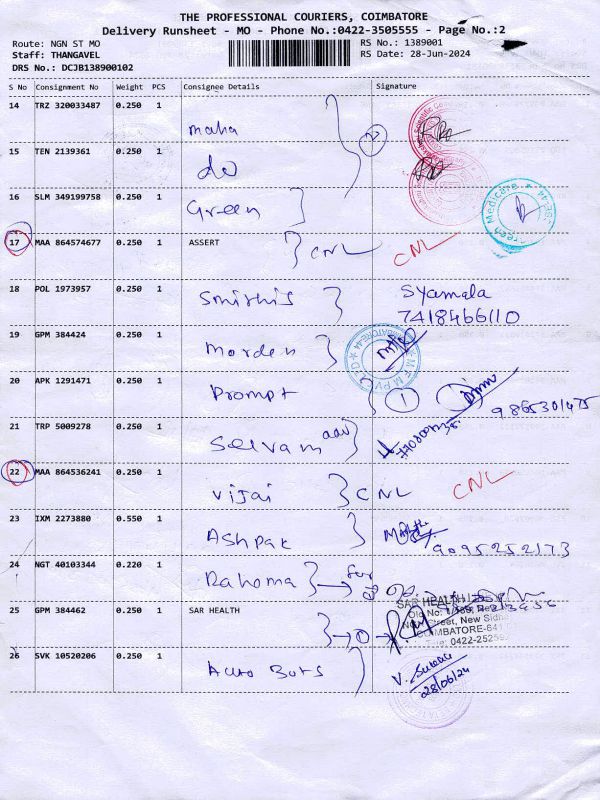 THE PROFESSIONAL COURIERS, COIMBATORE
Delivery Runsheet - MO - Phone No.:0422-3505555 - Page No.:2
Route: NGN ST MO
RS No.: 1389001
Staff: THANGAVEL
RS Date: 28-Jun-2024
DRS No.: DCJB138900102
S No Consignment No Weight PCS Consignee Details Signature
14 TRZ 320033487 0.250 1 maha 2
15 TEN 2139361 0.250 1 do
16 SLM 349199758 0.250 1 Green
Green Medicare
17 MAA 864574677 0.250 1 ASSERT CNL CNL
18 POL 1973957 0.250 1 Smithis Syamala
7418466110
19 GPM 384424 0.250 1 Morden
20 APK 1291471 0.250 1 Prompt 1
9865301475
21 TRP 5009278 0.250 1 Selvam
22 MAA 864536241 0.250 1 Vijai CNL CNL
23 IXM 2273880 0.550 1 Ashpak
9095252173
24 NGT 40103344 0.220 1 Rahoma
25 GPM 384462 0.250 1 SAR HEALTH 1
SAR HEALTH
Street, New Sidha
COIMBATORE-641
26 SVK 10520206 0.250 1 Auto Bots V.
28/06/24